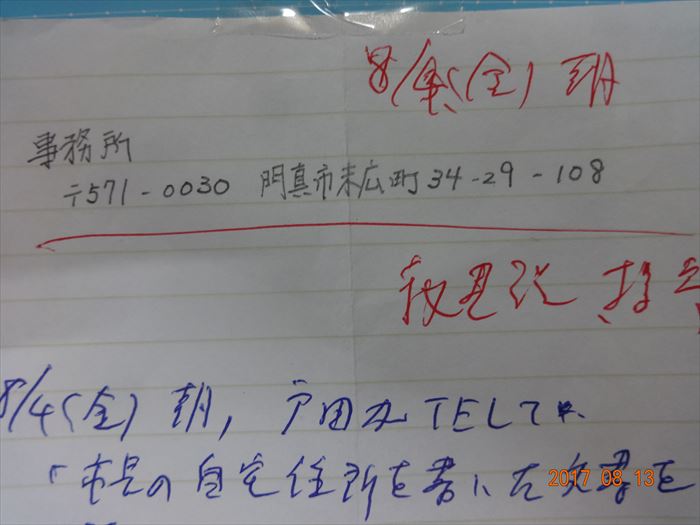 8/4(金) 朝
事務所
〒571-0030 門真市末広町34-29-108
8/4(金) 朝, 戸田がTELして
「市長の自宅住所を書いた文書を
2017 08 13